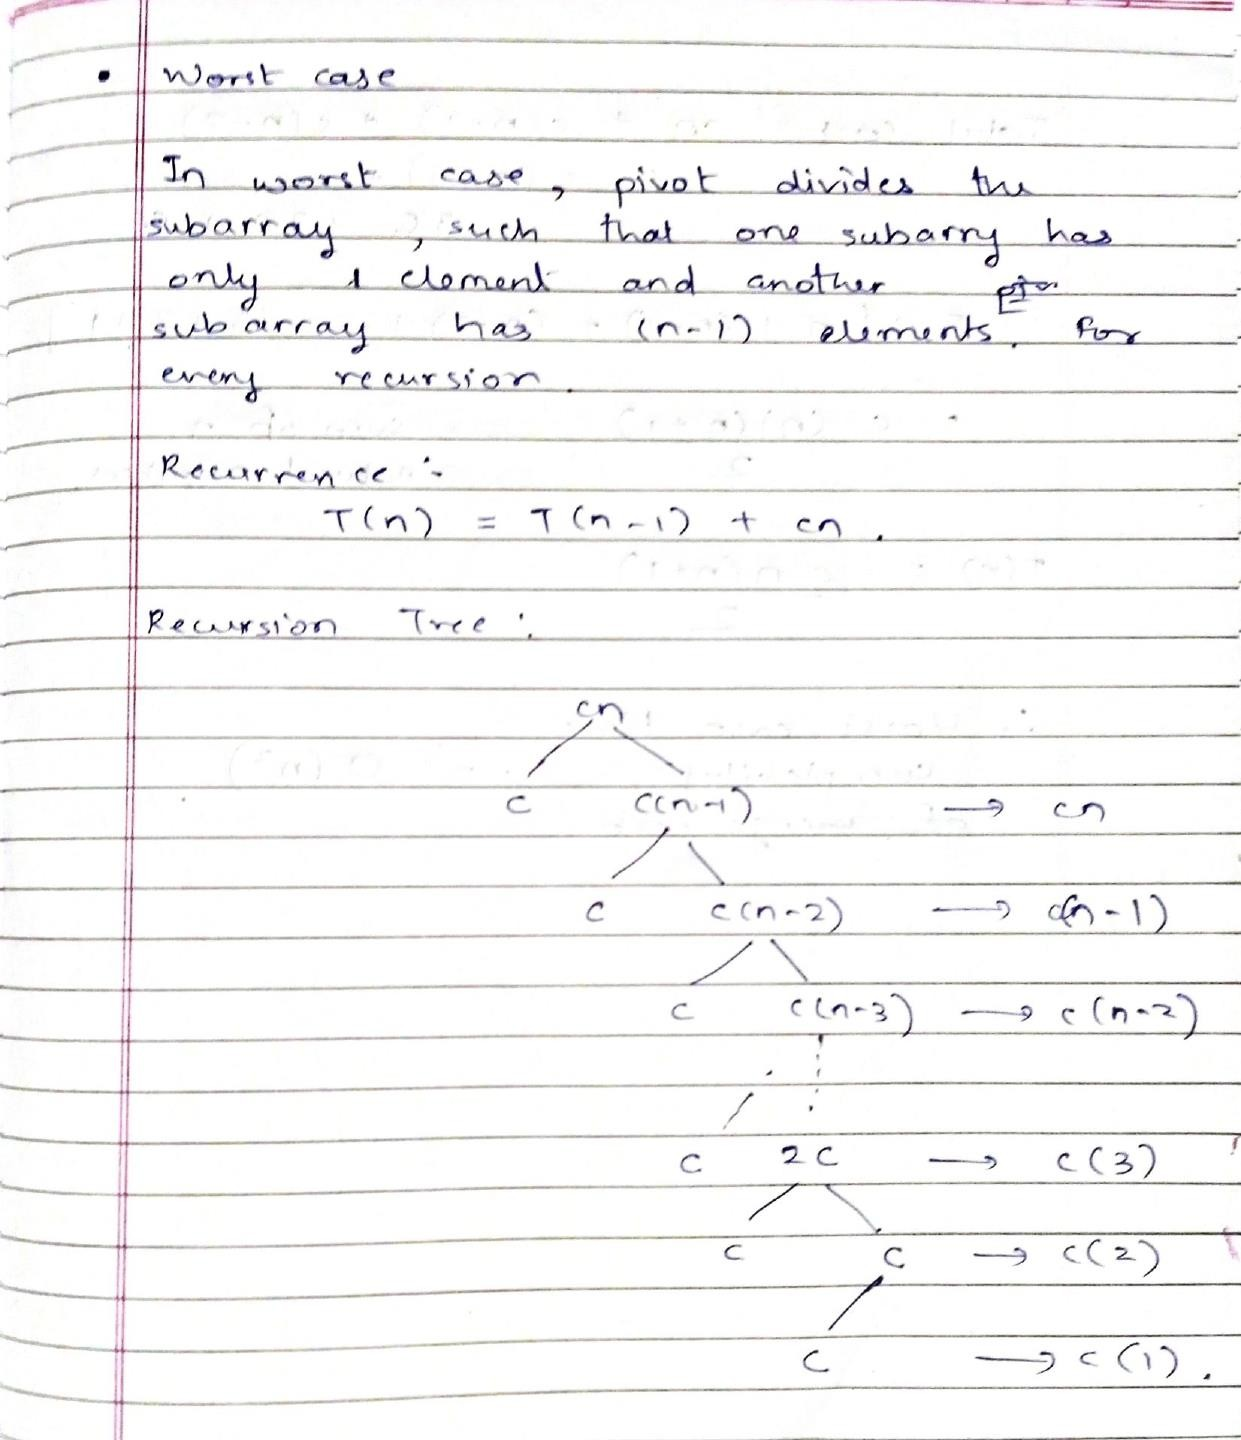 • Worst case
In worst case, pivot divides the
subarray, such that one subarry has
only 1 element and another
subarray has (n-1) elements. for
every recursion.
Recurrence :-
T(n) = T(n-1) + cn.
Recursion Tree :
cn
c c(n-1) → cn
c c(n-2) → c(n-1)
c c(n-3) → c(n-2)
c 2c → c(3)
c c → c(2)
c → c(1).